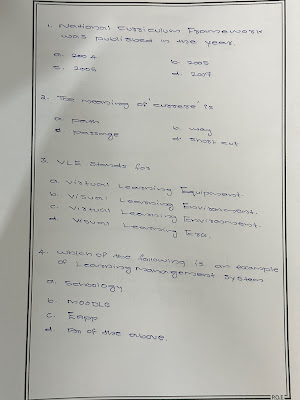 1. National Curriculum Framework
was published in the year.
a. 2004
b. 2005
c. 2006
d. 2007
2. The meaning of 'currere' is
a path
b. way
c passage
d short cut
3. VLE stands for
a. Virtual Learning Equipment.
b. Visual Learning Environment.
c. Virtual Learning Environment.
d. Visual Learning Era
4. Which of the following is an example
of Learning Management System
a. Schoology
b. MOODLE
c. Eapp
d. All of the above.